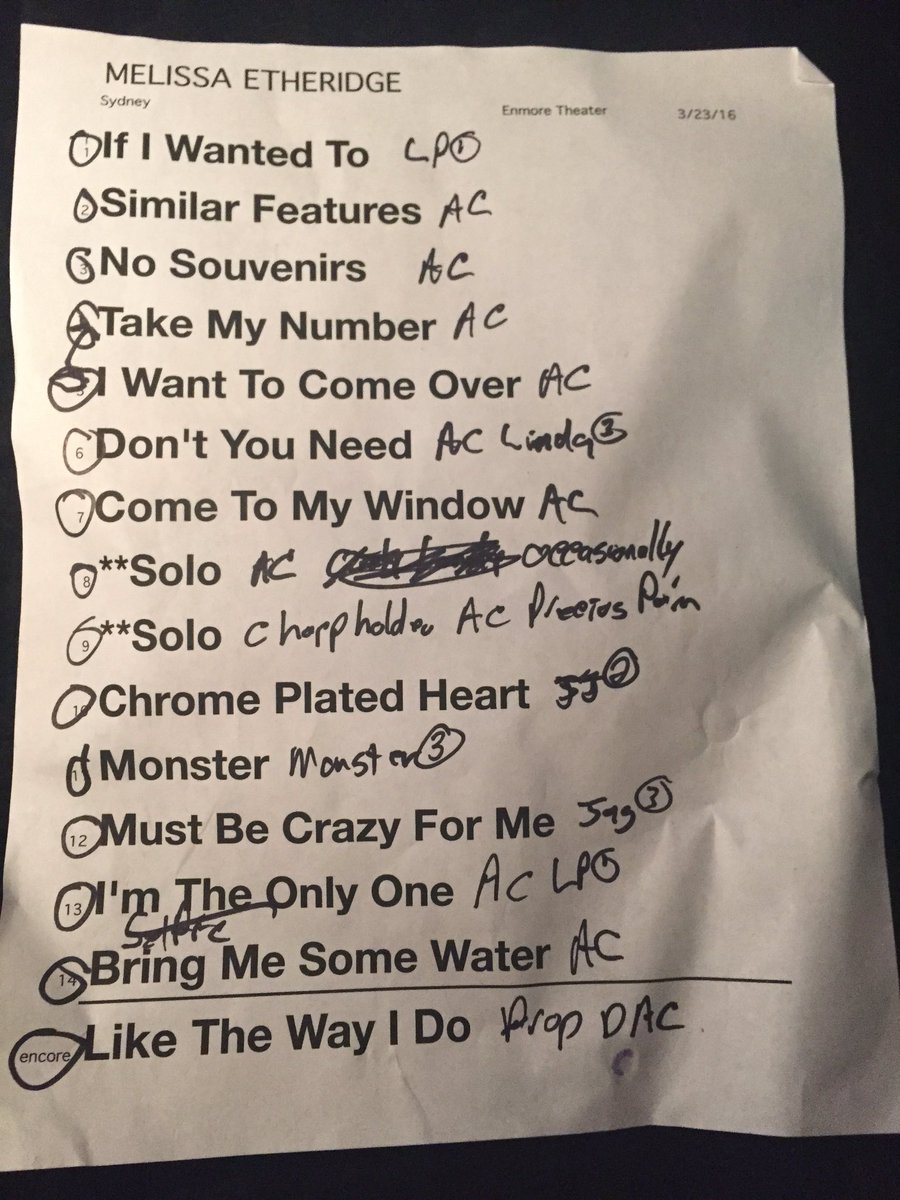 MELISSA ETHERIDGE
Sydney Enmore Theater 3/23/16
1 If I Wanted To LP 1
2 Similar Features AC
3 No Souvenirs AC
4 Take My Number AC
5 I Want To Come Over AC
6 Don't You Need AC Linda 3
7 Come To My Window AC
8 **Solo AC occasionally
9 **Solo AC Precios Pain
10 Chrome Plated Heart 2
11 Monster Monster 3
12 Must Be Crazy For Me Jag 3
13 I'm The Only One AC LP
Selfie
14 Bring Me Some Water AC
encore Like The Way I Do Drop D AC